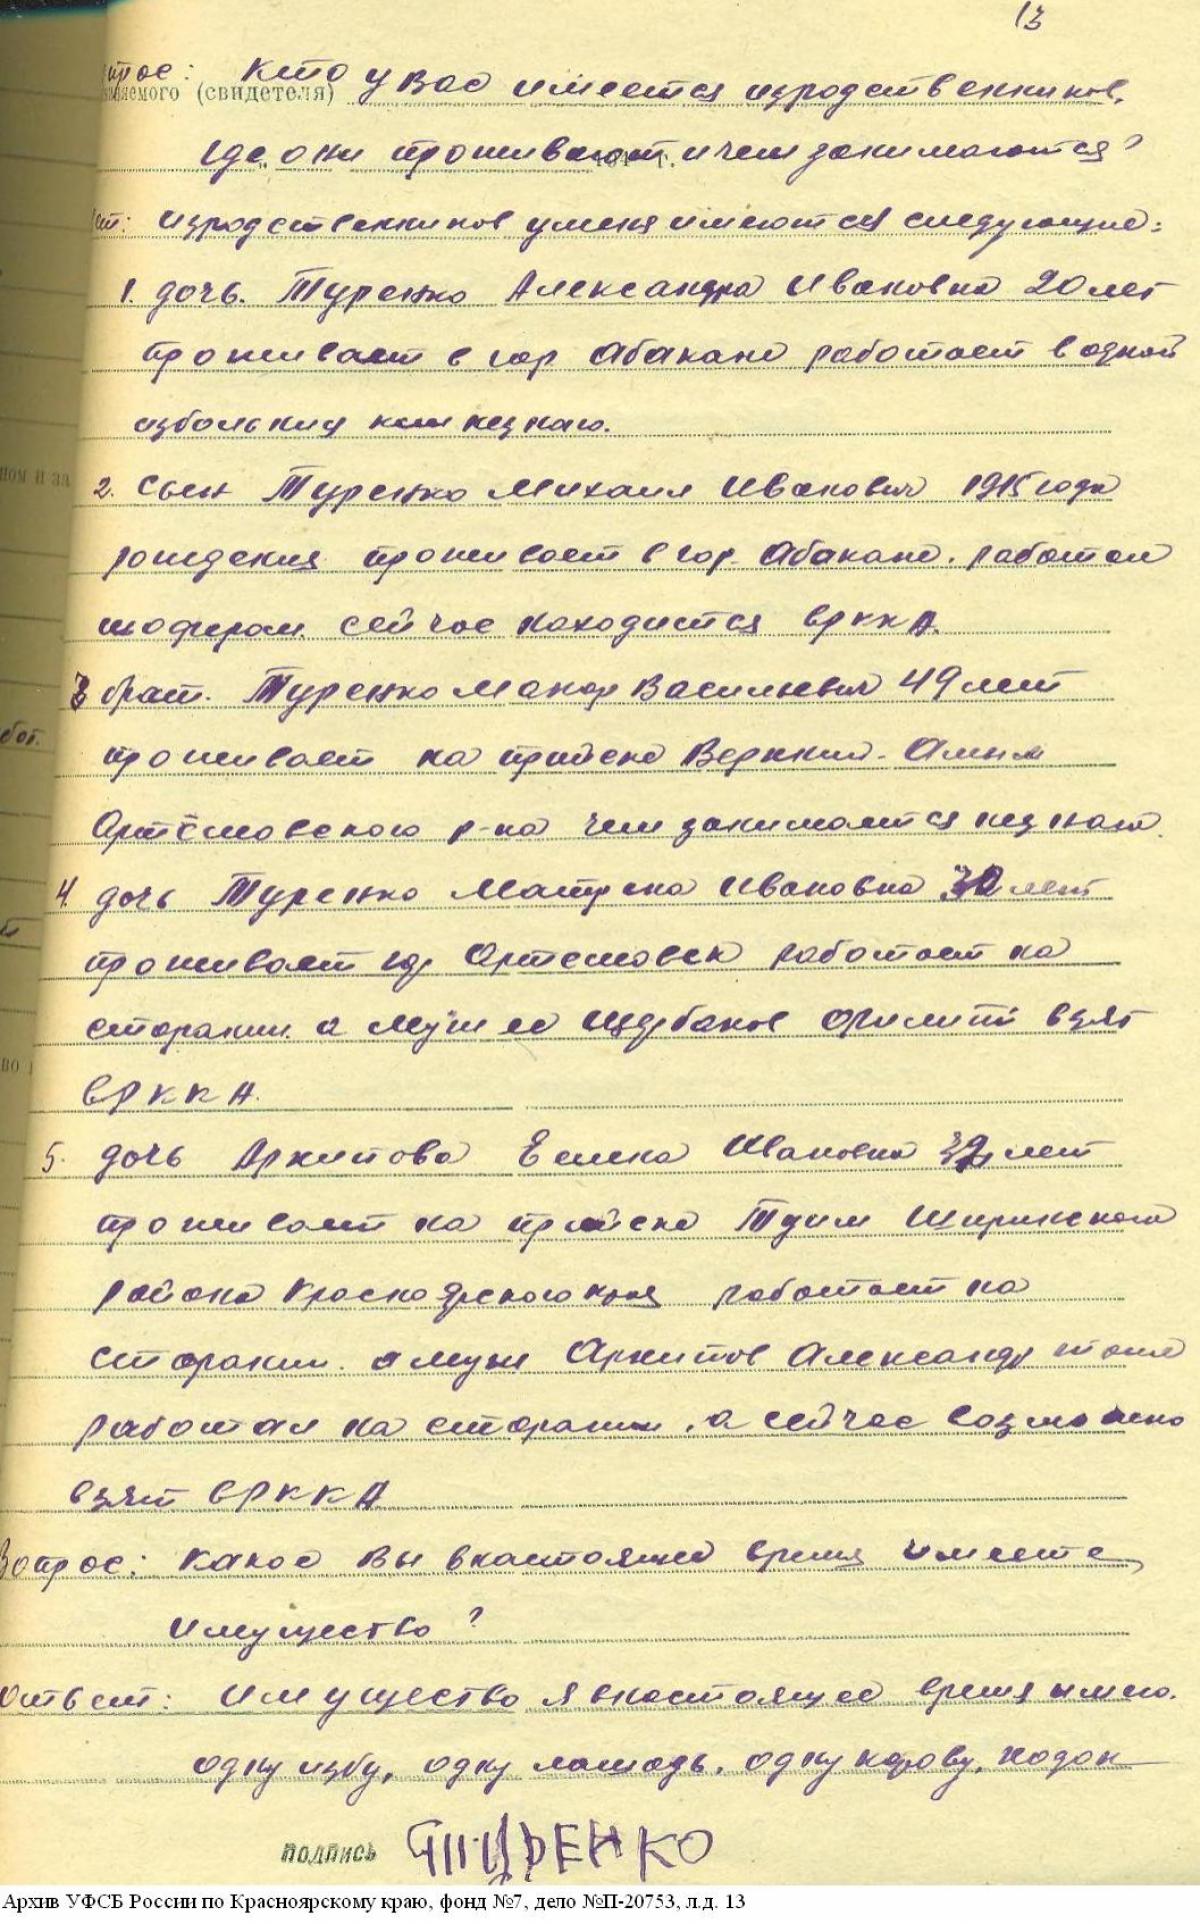 13
прос: Кто у Вас имеется изродственников,
няемого (свидетеля)
где они проживают и чем занимаются?
ет: изродственников уменя имеются следующие:
1. дочь. Туренко Александра Ивановна 20 лет
проживает в гор Абакане работает в одной
избольниц кем незнаю.
2. Сын Туренко Михаил Иванович 1915 года
рождения проживает в гор. Абакане. работал
шофером. сейчас находится вРККА.
3 брат. Туренко Макар Васильевич 49 лет
проживает на прииске Верхний-
Артёмовского р-на чем занимается незнаю.
4. дочь Туренко Матрена Ивановна 30 лет
проживает гор Артемовск работает на
старании. а муж ее Щербаков взят
вРККА.
5. дочь Архипова Елена Ивановна 32 лет
проживает на прииске Туим Ширинского
района Красноярского края работает на
старании. а муж Архипов Александр тоже
работал на старании, а сейчас возможно
взят вРККА
Вопрос: Какое Вы внастоящее время имеете
имущество?
Ответ: Имущество я внастоящее время имею.
одну избу, одну лошадь, одну корову, ходок
подпись ТУРЕНКО
ном и за
бот.
во
Архив УФСБ России по Красноярскому краю, фонд №7, дело №П-20753, л.д. 13